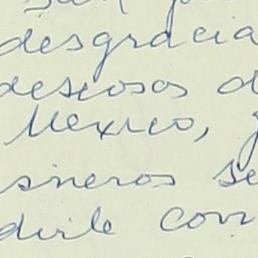 desgracia
deseosos d
Mexico, y
sineros se
dirle con